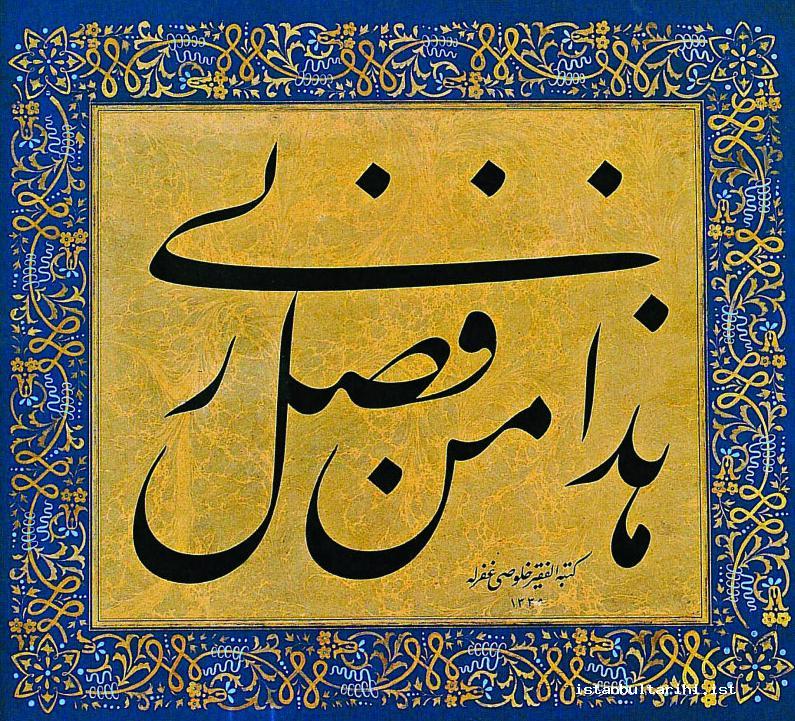 هذا من فضل ربى
كتبه الفقير خلوصى غفرله
istanbultarihi.ist